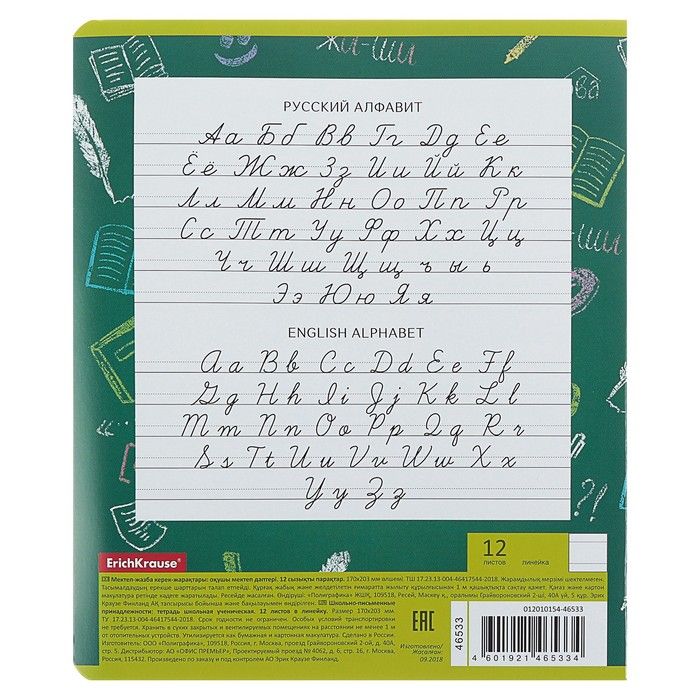 жи-ши
РУССКИЙ АЛФАВИТ
Аа Бб Вв Гг Дд Ее
Ёё Жж Зз Ии Йй Кк
Лл Мм Нн Оо Пп Рр
Сс Тт Уу Фф Хх Цц
Чч Шш Щщ ъ ы ь
Ээ Юю Яя
ENGLISH ALPHABET
Aa Bb Cc Dd Ee Ff
Gg Hh Ii Jj Kk Ll
Mm Nn Oo Pp Qq Rr
Ss Tt Uu Vv Ww Xx
Yy Zz
?!
ErichKrause®
12
листов линейка
KZ Мектеп-жазба керек-жарақтары: оқушы мектеп дәптері. 12 сызықты парақтар. 170х203 мм өлшемі. ТШ 17.23.13-004-46417544-2018. Жарамдылық мерзімі шектелмеген.
Тасымалдаудың ерекше шарттарын талап етпейді. Құрғақ жабық және желдетілетін ғимаратта жылыту құрылғысынан 1 м қашықтықта сақтау қажет. Қағаз және картон
макулатура ретінде кәдеге жаратылады. Ресейде жасалған. Өндіруші: «Полиграфика» ЖШҚ, 109518, Ресей, Мәскеу қ., 
Краузе Финланд АҚ тапсырысы бойынша және бақылауымен өндірілген. RU Школьно-письменные
принадлежности: тетрадь школьная ученическая. 12 листов в линейку. Размер 170х203 мм.
ТУ 17.23.13-004-46417544-2018. Срок годности не ограничен. Особых условий транспортировки
не требуется. Хранить в сухих закрытых и вентилируемых помещениях на расстоянии не менее 1 м
от отопительных устройств. Утилизируется как бумажная и картонная макулатура. Сделано в России.
Изготовитель: ООО «Полиграфика», 109518, Россия, г. Москва, проезд Грайвороновский 2-ой, д. 40А,
стр. 5. Дистрибьютор: АО «ОФИС ПРЕМЬЕР», Проектируемый проезд № 4062, д. 6, стр. 16, г. Москва,
Россия, 115432. Произведено по заказу и под контролем АО Эрик Краузе Финланд.
EAC
Изготовлено/
Жасалған:
09.2018
46533
012010154-46533
4 601921 465334